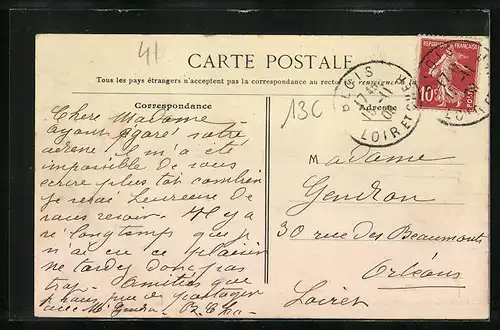 41
CARTE POSTALE
Tous les pays étrangers n'acceptent pas la correspondance au recto (se renseigner
Correspondance
Adresse
13C
RÉPUBLIQUE FRANÇAISE
10c
POSTES
BLOIS
LOIR ET CHER
Chere Madame
ayant égaré votre
adresse il m'a été
impossible de vous
ecrire plus tot combien
je serai heureuse de
vous revoir. Il y a
si longtemps que je
n'ai eu ce plaisir
ne tardez donc pas
trop. Amitiés que
je vous prie de partager
avec Mr Gendron
Madame
Gendron
30 rue des Beaumonts
Orléans
Loiret